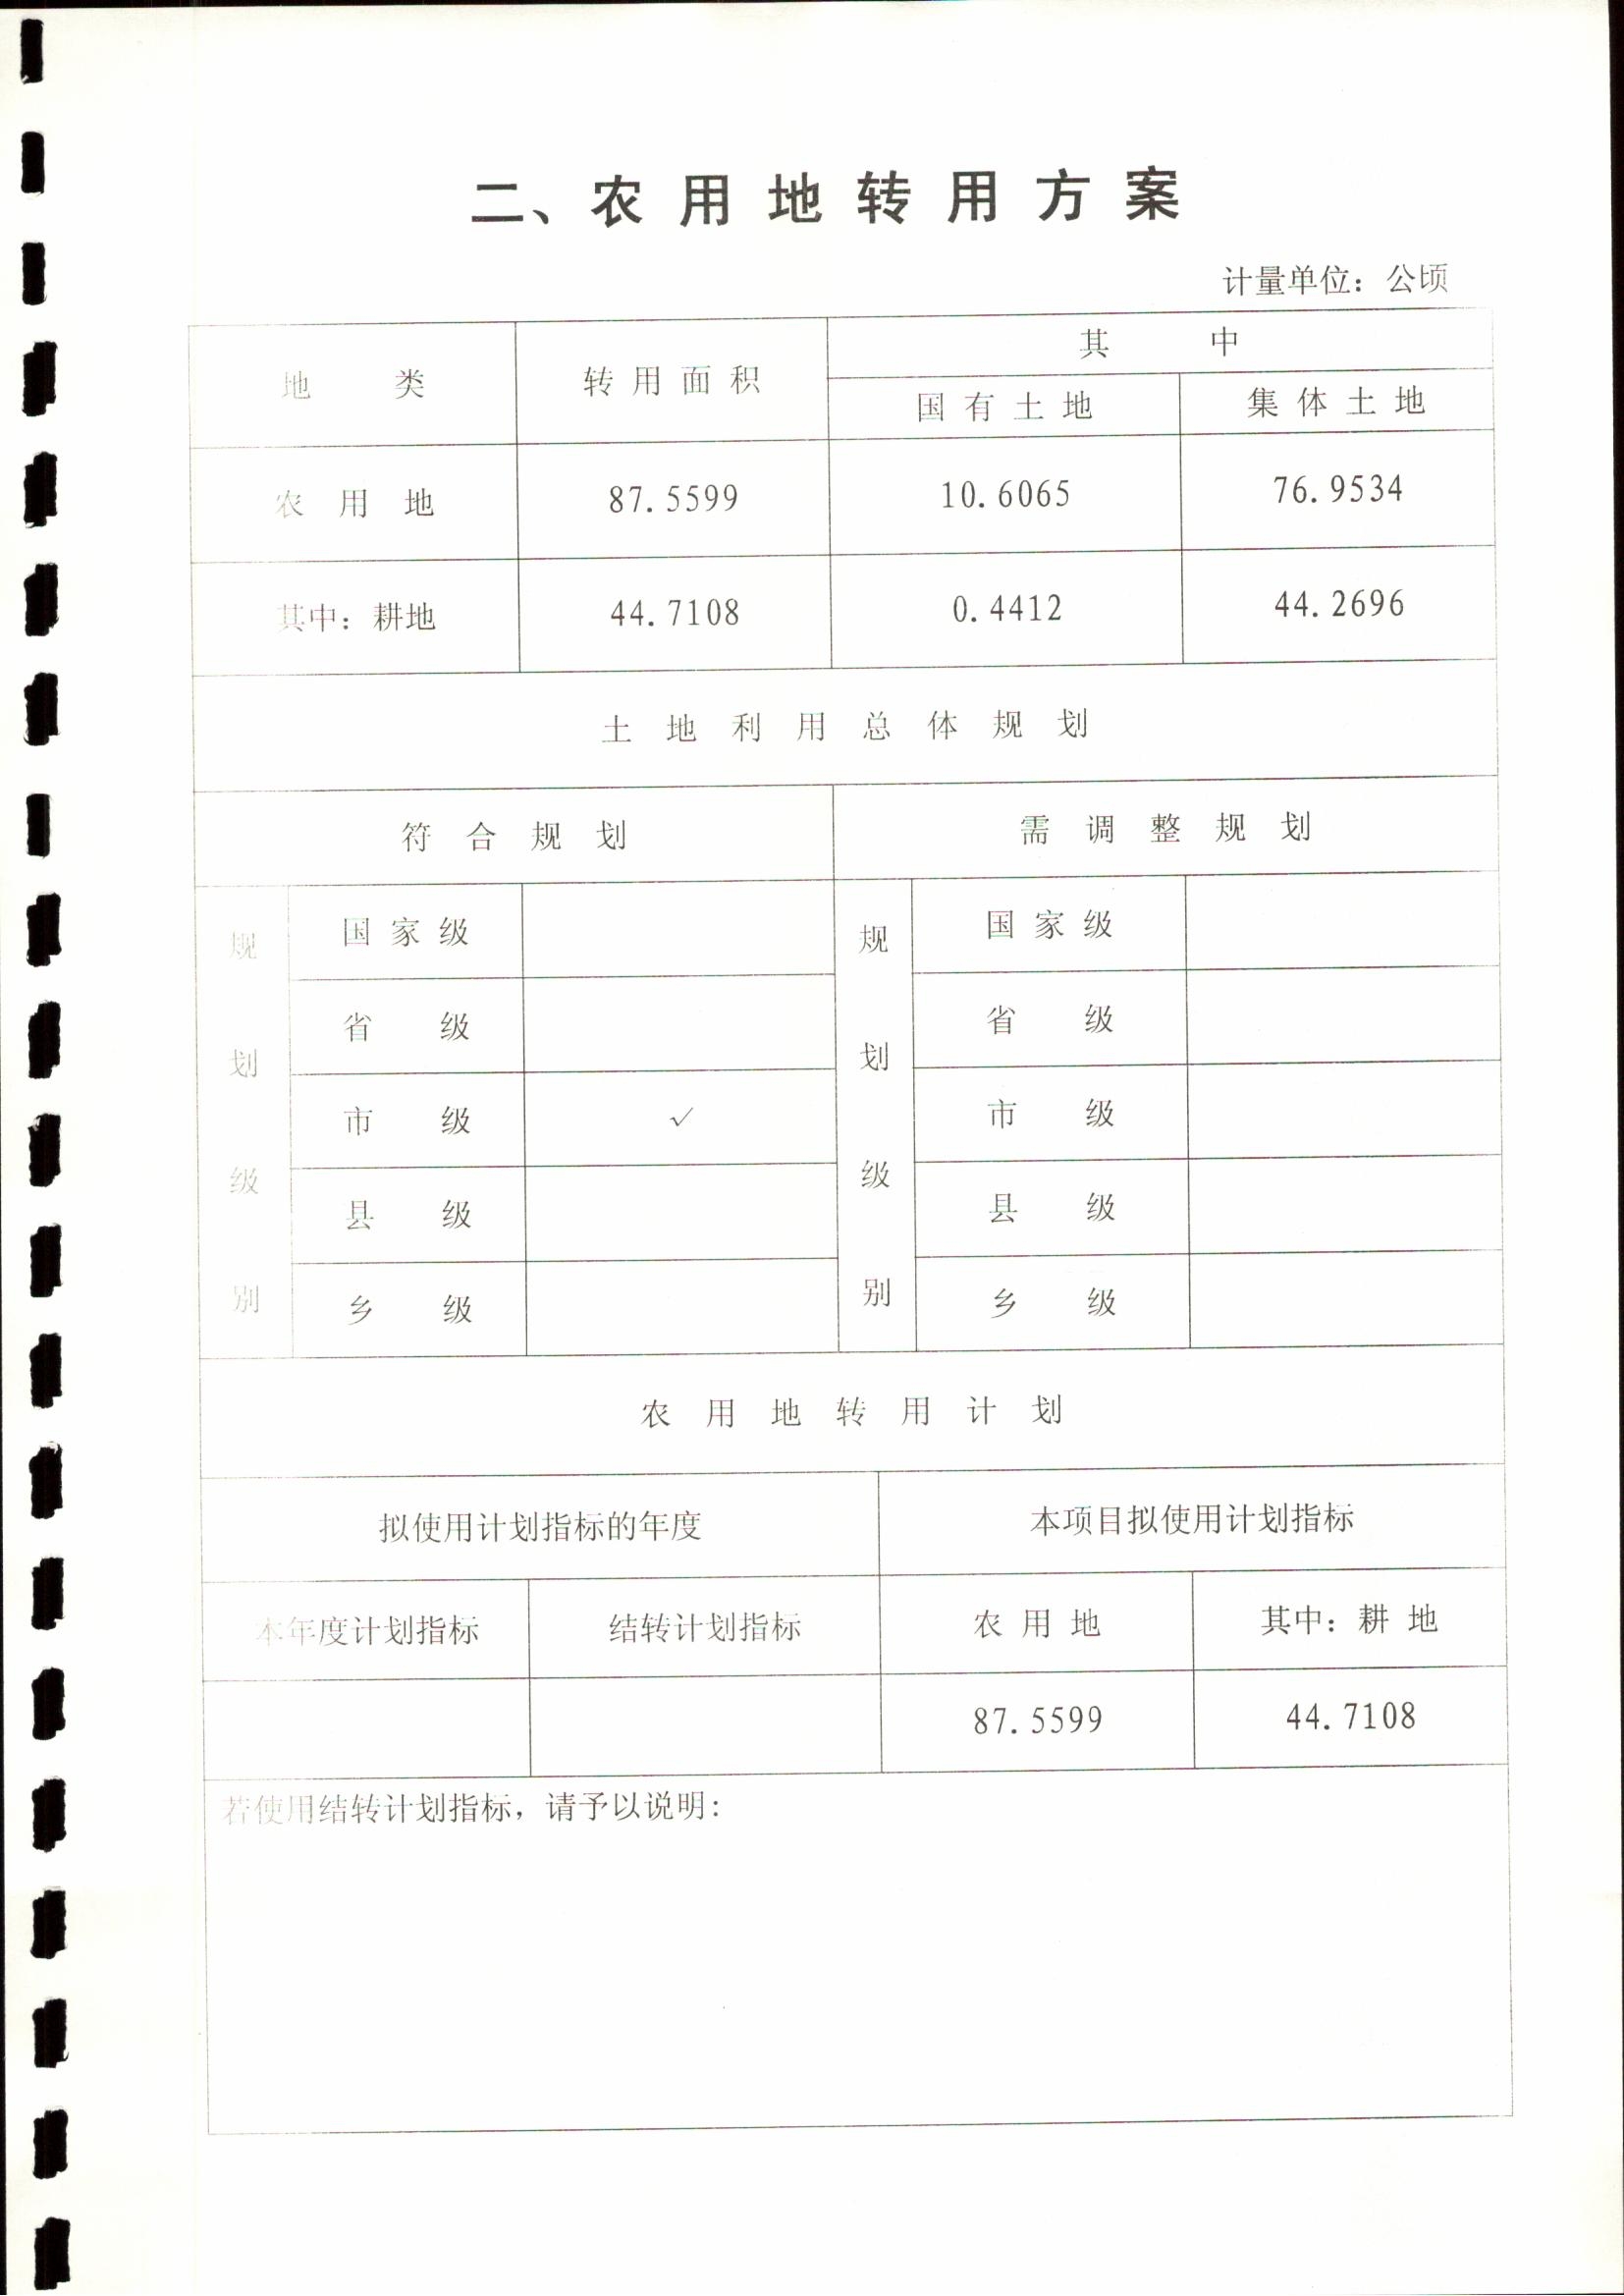 二、农用地转用方案
计量单位：公顷
地类 转用面积 其中
国有土地 集体土地
农用地 87.5599 10.6065 76.9534
其中：耕地 44.7108 0.4412 44.2696
土地利用总体规划
符合规划 需调整规划
规划级别 国家级 规划级别 国家级
省级 省级
市级 √ 市级
县级 县级
乡级 乡级
农用地转用计划
拟使用计划指标的年度 本项目拟使用计划指标
本年度计划指标 结转计划指标 农用地 其中：耕地
87.5599 44.7108
若使用结转计划指标，请予以说明：